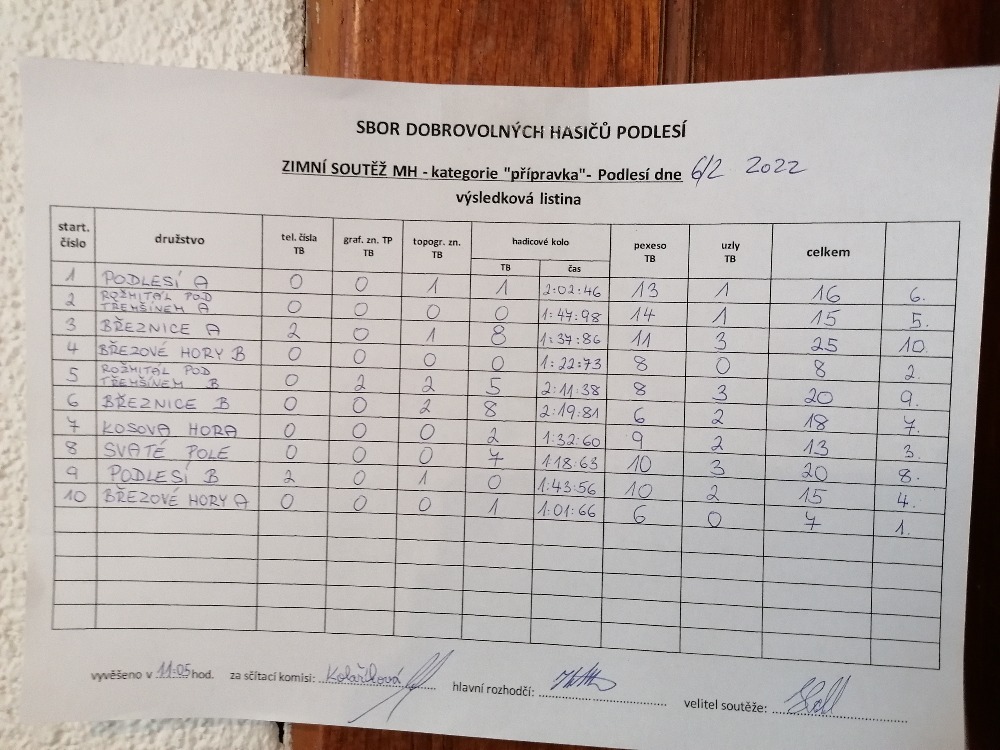 SBOR DOBROVOLNÝCH HASIČŮ PODLESÍ
ZIMNÍ SOUTĚŽ MH - kategorie "přípravka"- Podlesí dne 6/2 2022
výsledková listina
start. číslo družstvo tel. čísla TB graf. zn. TP TB topogr. zn. TB hadicové kolo TB čas pexeso TB uzly TB celkem
1 PODLESÍ A 0 0 1 1 2:02:46 13 1 16 6.
2 ROŽMITÁL POD TŘEMŠÍNEM A 0 0 0 0 1:47:98 14 1 15 5.
3 BŘEZNICE A 2 0 1 8 1:37:86 11 3 25 10.
4 BŘEZOVÉ HORY B 0 0 0 0 1:22:73 8 0 8 2.
5 ROŽMITÁL POD TŘEMŠÍNEM B 0 2 2 5 2:11:38 8 3 20 9.
6 BŘEZNICE B 0 0 2 8 2:19:81 6 2 18 7.
7 KOSOVA HORA 0 0 0 2 1:32:60 9 2 13 3.
8 SVATÉ POLE 0 0 0 7 1:18:63 10 3 20 8.
9 PODLESÍ B 2 0 1 0 1:43:56 10 2 15 4.
10 BŘEZOVÉ HORY A 0 0 0 1 1:01:66 6 0 7 1.
vyvěšeno v 11:05 hod. za sčítací komisi: Kolaříková hlavní rozhodčí: velitel soutěže: